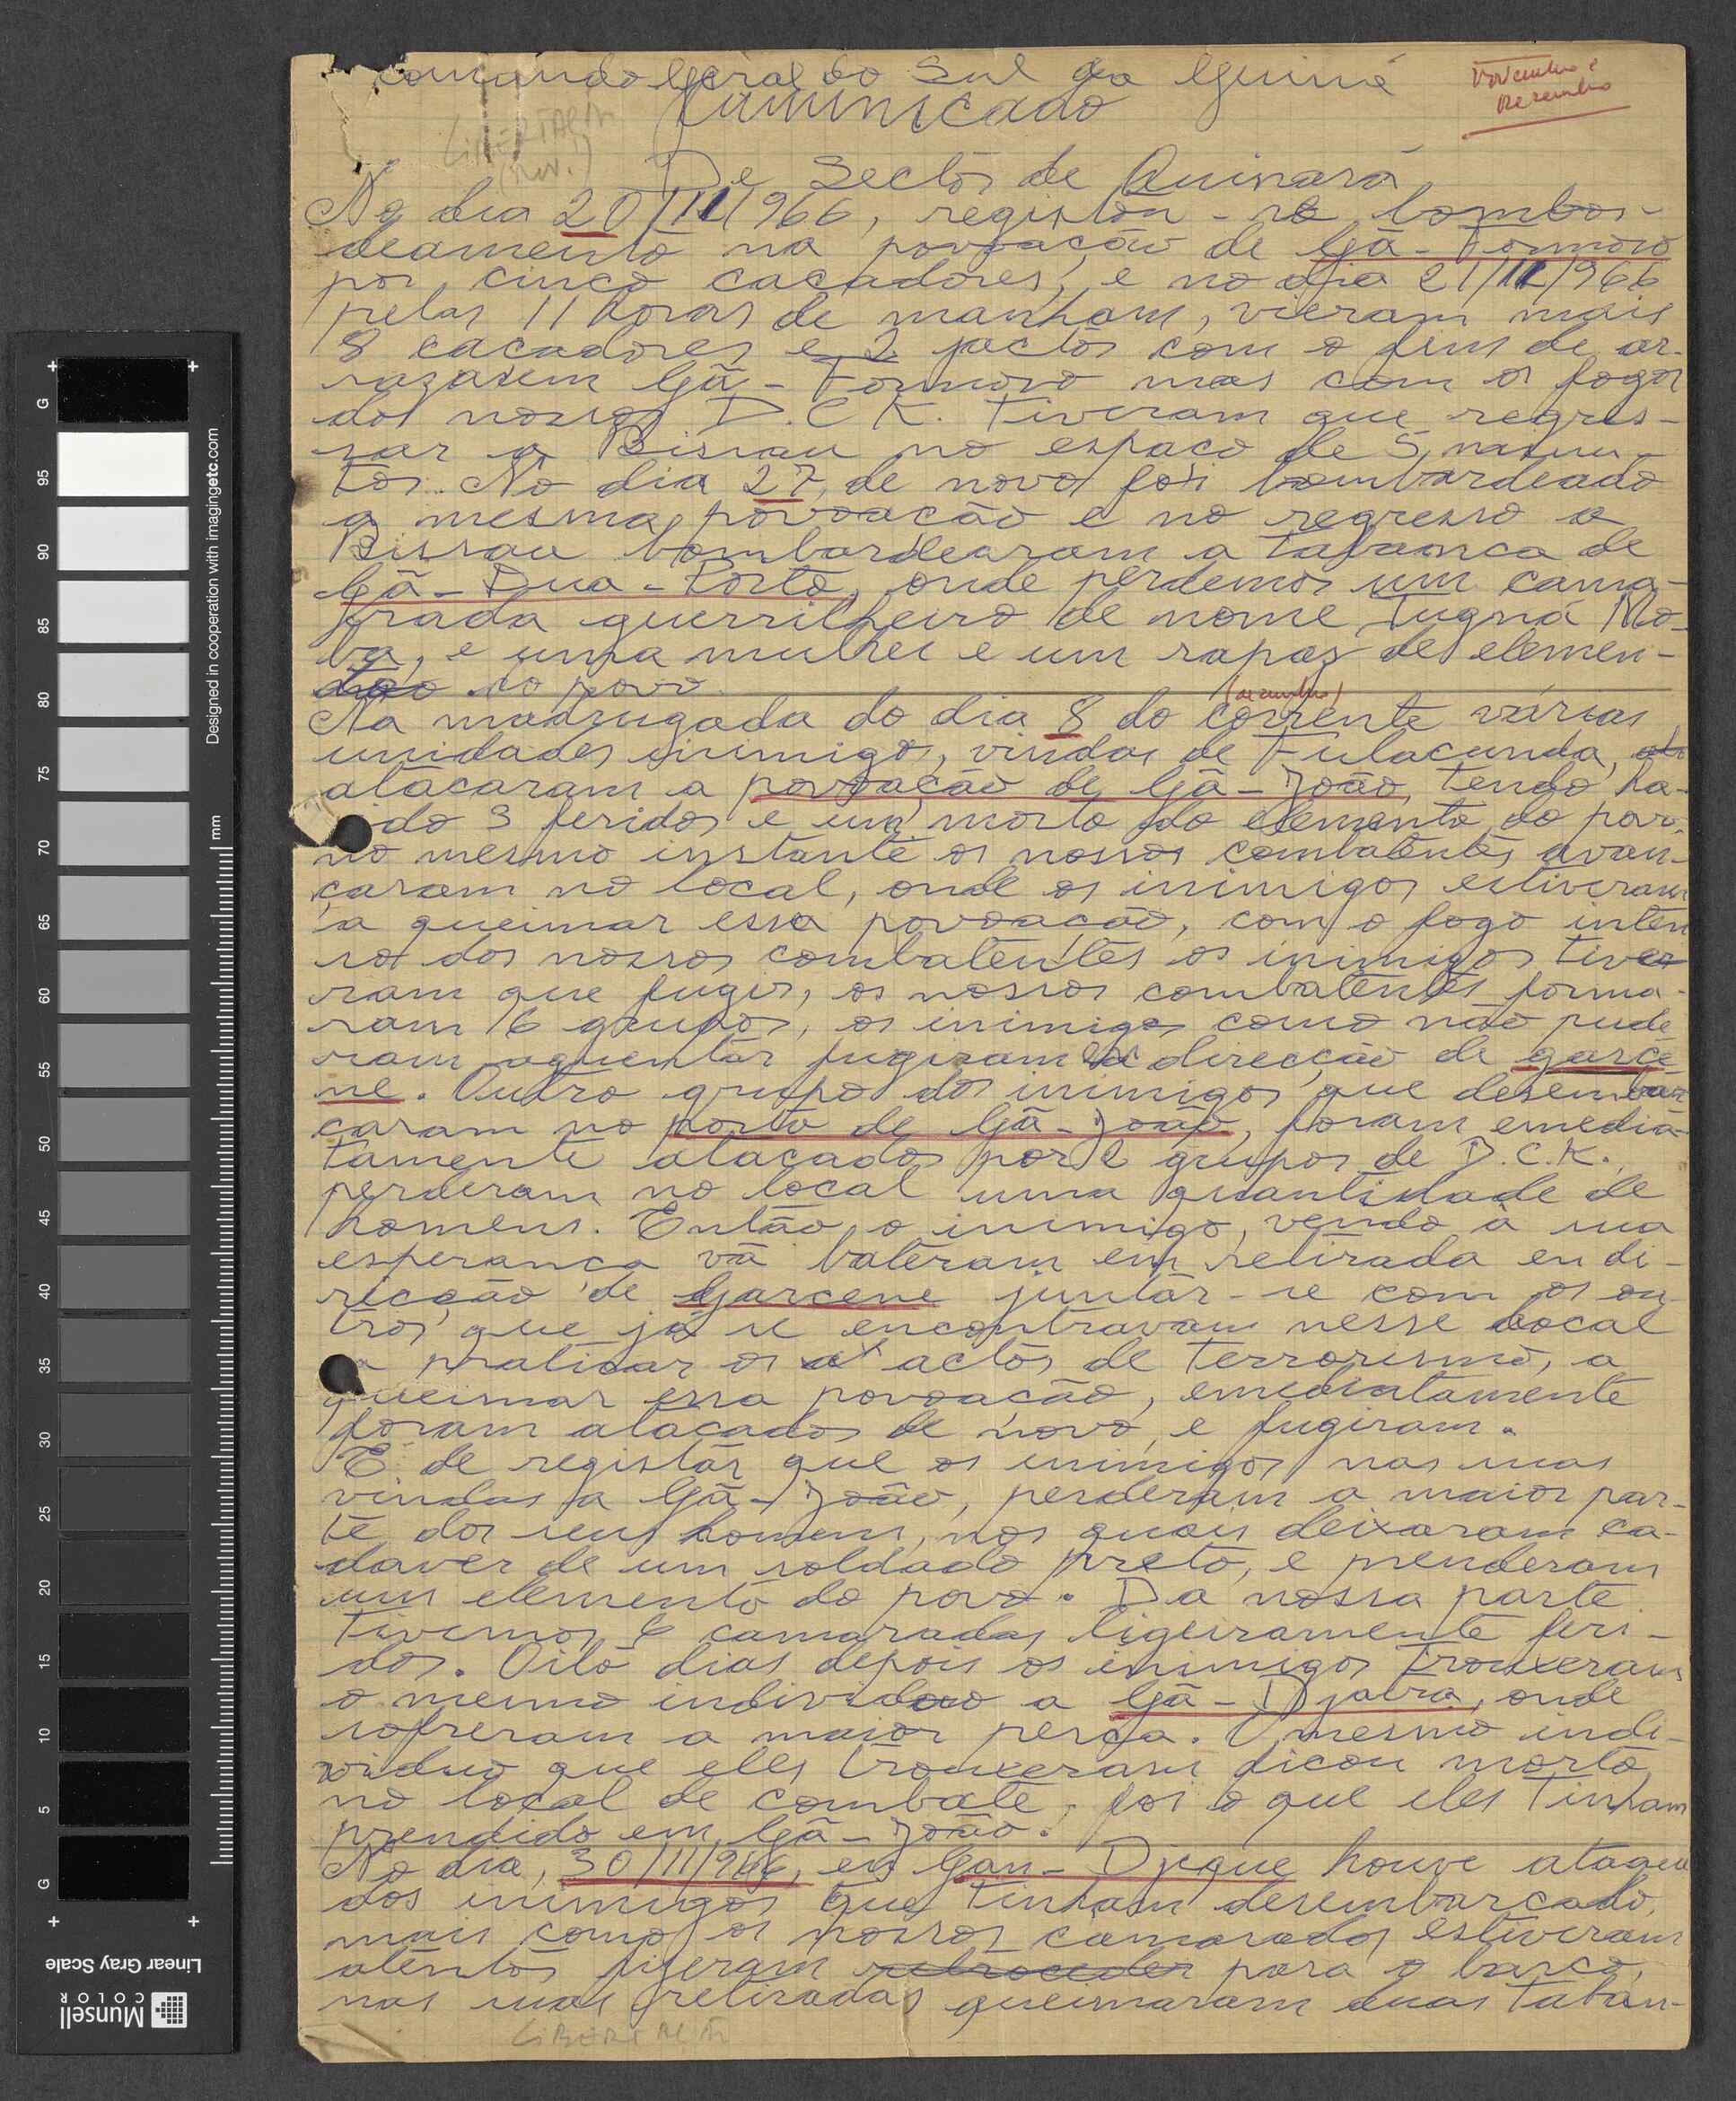 comando Geral do Sul da Guiné
Comunicado
Novembro e
Dezembro
LIBERTAÇÃO
(nov.)
De Sectôr de Quinará
No dia 20/11/966, registou-se bombar-
deamento na povoação de Gã-Formoso
por cinco caçadores, e no dia 21/11/966
pelas 11 horas de manham, vieram mais
8 caçadores e 2 jactos com o fim de ar-
razarem Gã-Formoso mas com os fogos
dos nossos D.C.K. tiveram que regres-
sar a Bissau no espaço de 5 minu-
tos. No dia 27, de novo foi bombardeado
a mesma povoacão e no regresso a
Bissau bombardearam a tabanca de
Gã-Dua-Porto, onde perdemos um cama-
rada guerrilheiro de nome Tugná Mo-
ba, e uma mulher e um rapaz de elemen-
do povo.
(dezembro)
Na madrugada do dia 8 do corrente várias
unidades inimigos, vindas de Fulacunda,
atácaram a povoação de Gã-João, tendo ha-
vido 3 feridos e um morto do elemento do povo,
no mesmo instante os nossos combatentes avan-
çaram no local, onde os inimigos estiveram
a queimar essa povoacão, com o fogo inten
so dos nossos combatentes os inimigos tive
ram que fugir, os nossos combatentes forma-
ram 6 grupos, os inimigos como não pude
ram aguentar fugiram em direcção de garce
ne. Outro grupo dos inimigos que desembar
caram no porto de Gã-João, foram emedia-
tamente atacados por 2 grupos de D.C.K.,
perderam no local uma quantidade de
homens. Então o inimigo, vendo a sua
esperança vã bateram em retirada en di-
recção de Garcene juntár-se com os ou-
tros que já se encontravam nesse local
a praticar os actos de terrorismo, a
queimar essa povoação, emediatamente
foram atacados de novo, e fugiram.
É de registár que os inimigos nas suas
vindas a Gã-João, perderam a maior par-
te dos seus homens, nos quais deixaram ca-
daver de um soldado preto, e prenderam
um elemento do povo. Da nossa parte
tivemos 6 camaradas ligeiramente feri-
dos. Oito dias depois os inimigos trouxeram
o mesmo individuo a Gã-Djabra, onde
sofreram a maior perca. O mesmo indi-
viduo que eles trouxeram ficou morto
no local de combate, foi o que eles tinham
prendido em Gã-João.
No dia, 30/11/966, en Gan-Djegue houve ataque
dos inimigos que tinham desembarcado,
mais como os nossos camaradas estiveram
aténtos fizeram retroceder para o barco,
nas suas retiradas queimaram duas taban-
LIBERTAÇÃO